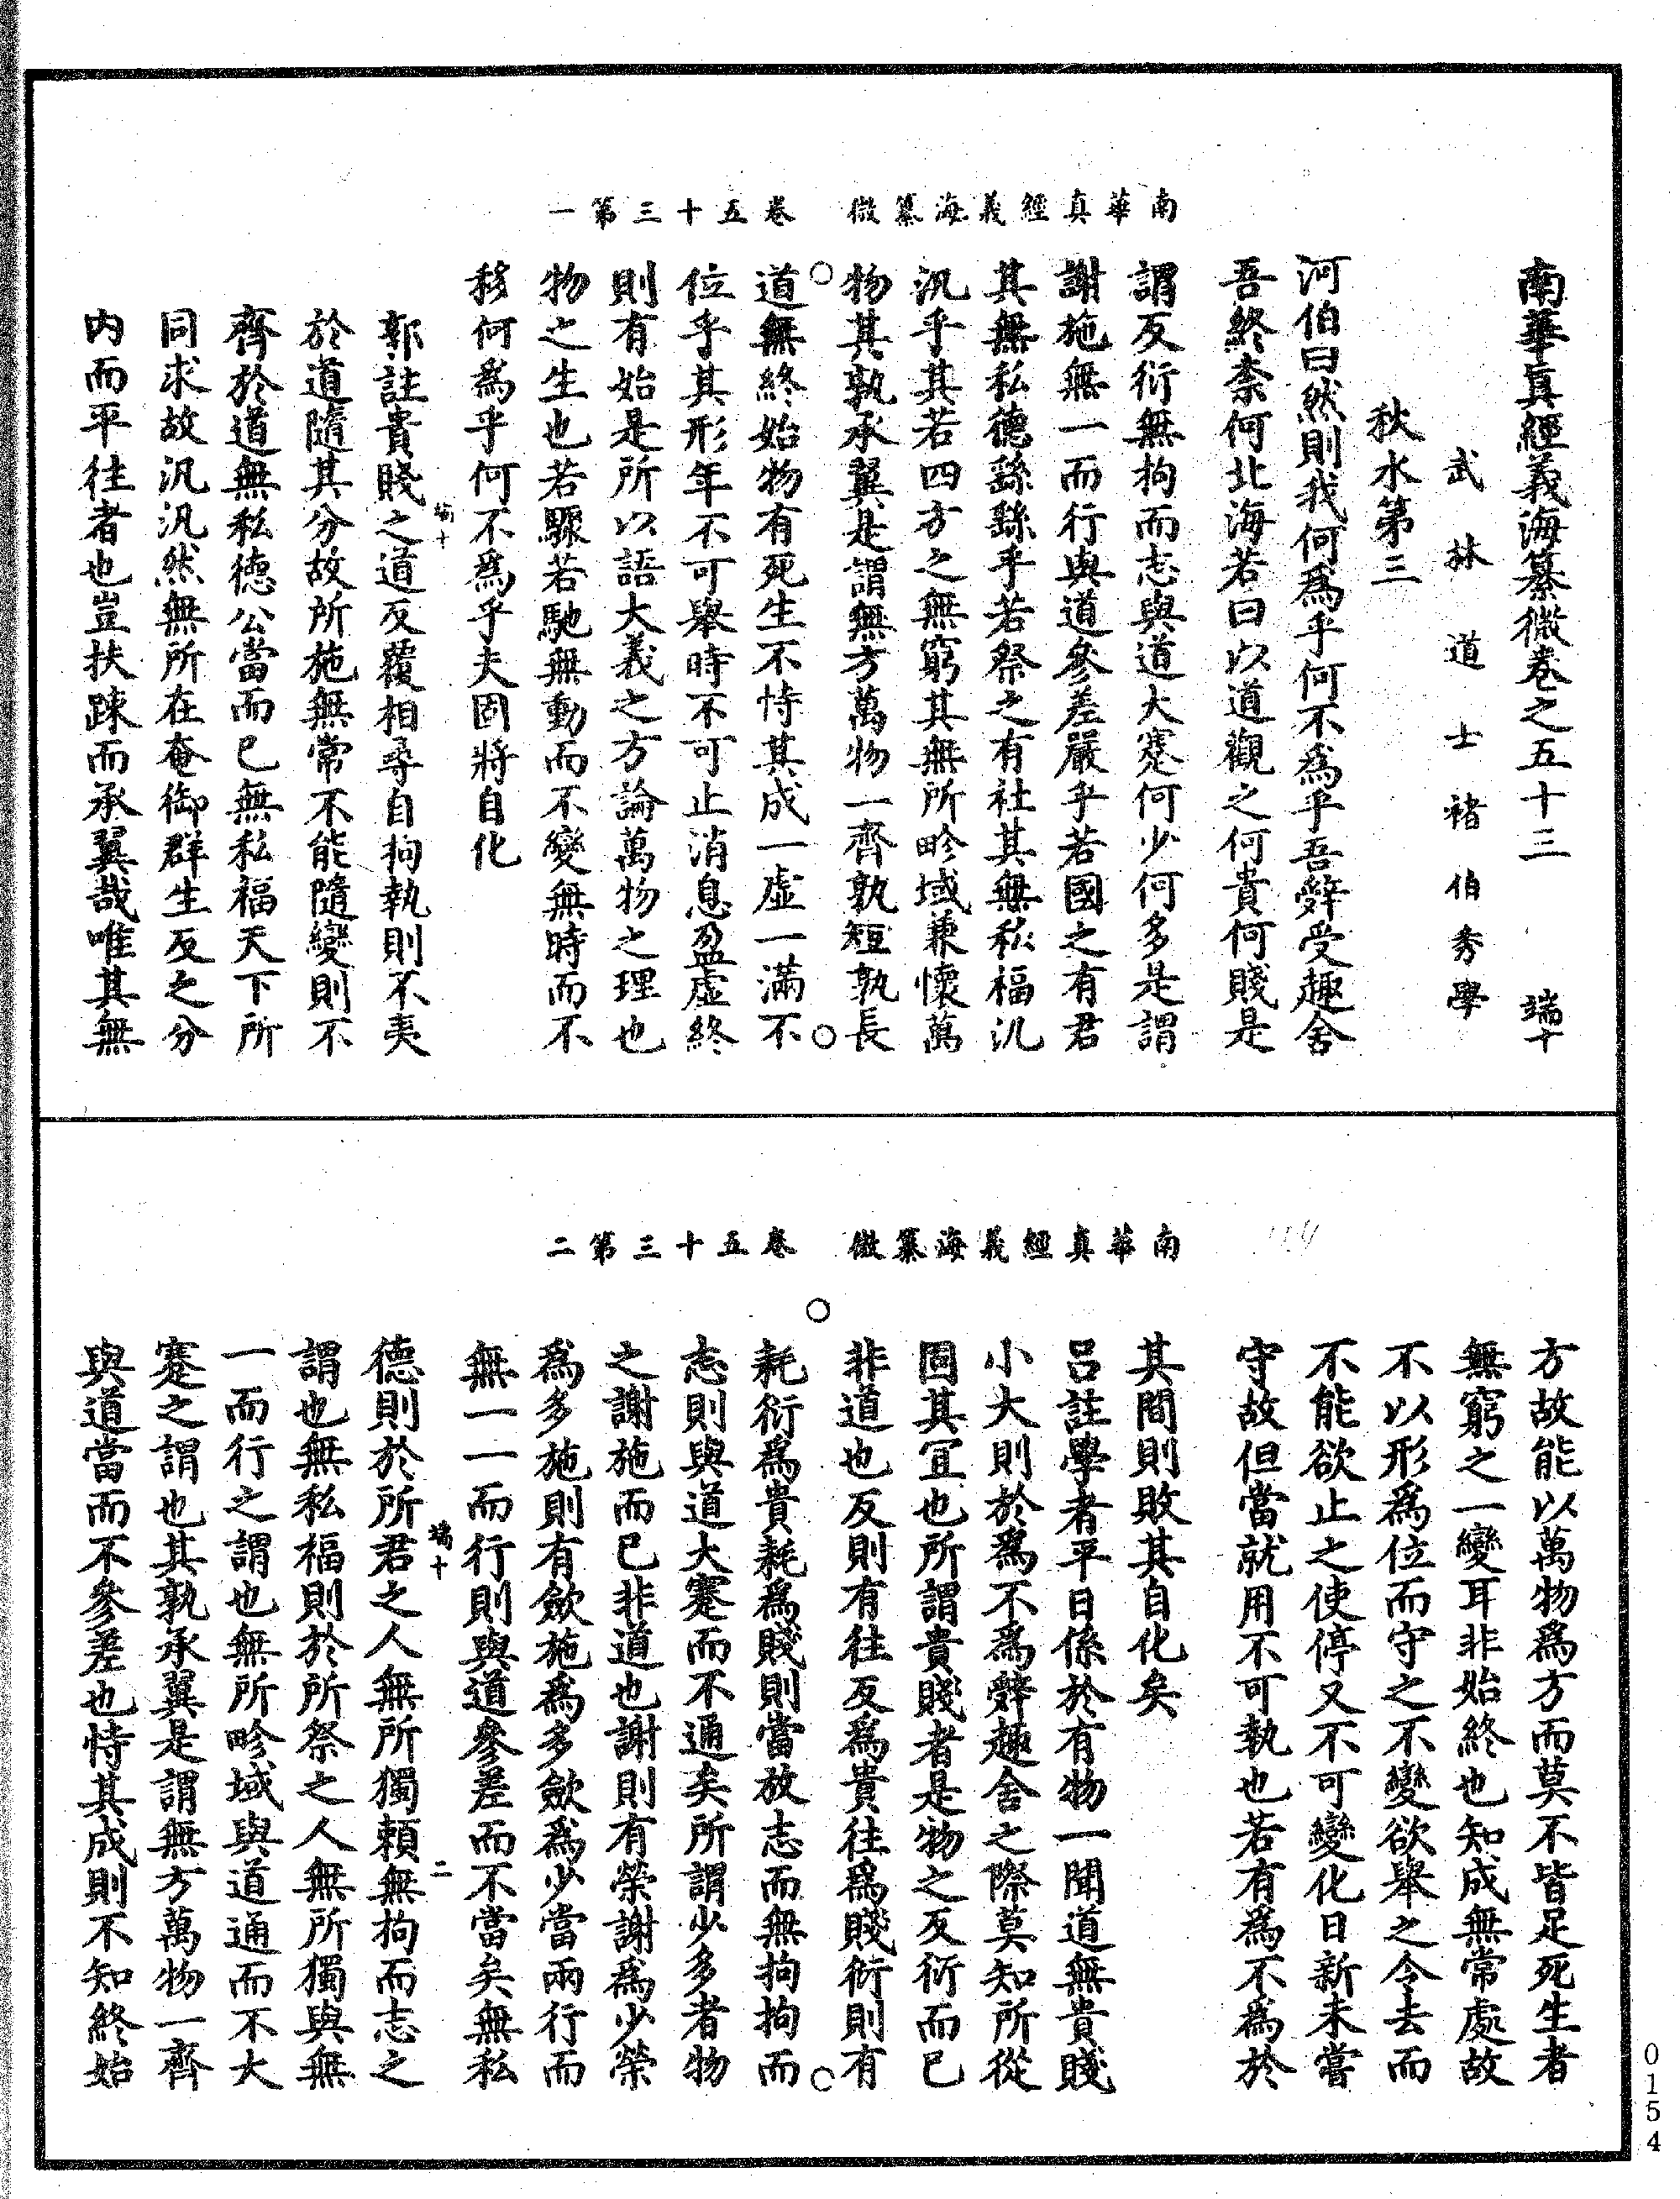 南華真經義海纂微　卷五十三第一
南華眞經義海纂微卷之五十三　端十
武林道士褚伯秀學
秋水第三
河伯曰然則我何爲乎何不爲乎吾辤受趣舍
吾終柰何北海若曰以道觀之何貴何賤是
謂反衍無拘而志與道大蹇何少何多是謂
謝施無一而行與道參差嚴乎若國之有君
其無私德繇繇乎若祭之有社其無私福汎
汎乎其若四方之無窮其無所畛域兼懷萬
物其孰承翼是謂無方萬物一齊孰短孰長
道無終始物有死生不恃其成一虛一滿不
位乎其形年不可舉時不可止消息盈虛終
則有始是所以語大義之方論萬物之理也
物之生也若驟若馳無動而不變無時而不
移何爲乎何不爲乎夫固將自化
端十
郭註貴賤之道反覆相尋自拘執則不夷
於道隨其分故所施無常不能隨變則不
齊於道無私德公當而已無私福天下所
同求故汎汎然無所在奄御群生反之分
内而平往者也豈扶踈而承翼哉唯其無
南華真經義海纂微　卷五十三第二
方故能以萬物爲方而莫不皆足死生者
無窮之一變耳非始終也知成無常處故
不以形爲位而守之不變欲舉之令去而
不能欲止之使停又不可變化日新未嘗
守故但當就用不可執也若有爲不爲於
其間則敗其自化矣
吕註學者平日係於有物一聞道無貴賤
小大則於爲不爲辤趣舍之際莫知所從
固其宜也所謂貴賤者是物之反衍而已
非道也反則有往反爲貴往爲賤衍則有
耗衍爲貴耗爲賤則當放志而無拘拘而
志則與道大蹇而不通矣所謂少多者物
之謝施而已非道也謝則有榮謝爲少榮
爲多施則有歛施爲多歛爲少當兩行而
無一一而行則與道參差而不當矣無私
端十　二
德則於所君之人無所獨頼無拘而志之
謂也無私福則於所祭之人無所獨與無
一而行之謂也無所畛域與道通而不大
蹇之謂也其孰承翼是謂無方萬物一齊
與道當而不參差也恃其成則不知終始
0154